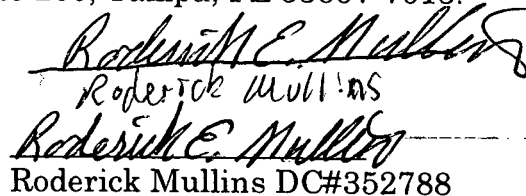 Tampa, FL
Roderick E. Mullins
Roderick Mullins
Roderick E. Mullins
Roderick Mullins DC#352788